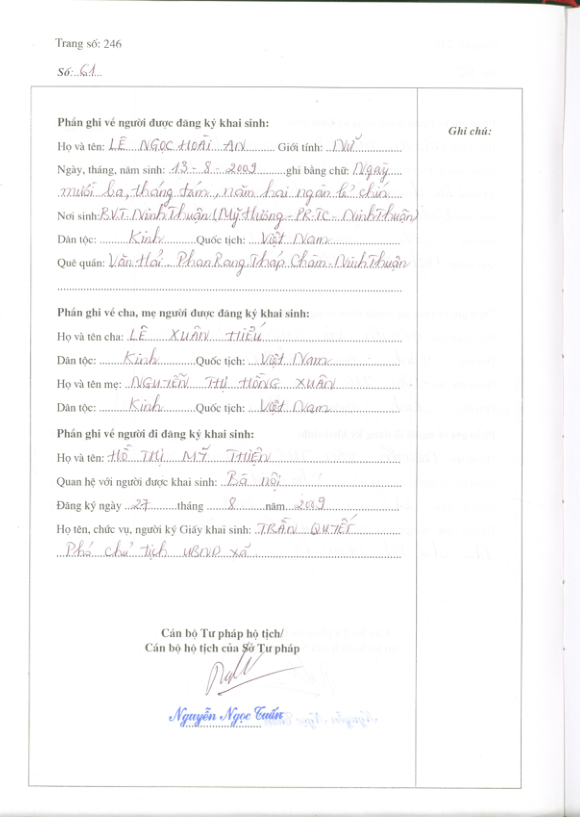 Trang số: 246
Số: 61
Phần ghi về người được đăng ký khai sinh:
Ghi chú:
Họ và tên: LÊ NGỌC HOÀI AN Giới tính: Nữ
Ngày, tháng, năm sinh: 13-8-2009 ghi bằng chữ: Ngày
mười ba, tháng tám, năm hai ngàn lẻ chín
Nơi sinh: B.V.T. Ninh Thuận (Mỹ Hương - PR-TC - Ninh Thuận)
Dân tộc: Kinh Quốc tịch: Việt Nam
Quê quán: Văn Hải Phan Rang Tháp Chàm - Ninh Thuận
Phần ghi về cha, mẹ người được đăng ký khai sinh:
Họ và tên cha: LÊ XUÂN HIẾU
Dân tộc: Kinh Quốc tịch: Việt Nam
Họ và tên mẹ: NGUYỄN THỊ HỒNG XUÂN
Dân tộc: Kinh Quốc tịch: Việt Nam
Phần ghi về người đi đăng ký khai sinh:
Họ và tên: HỒ THỊ MỸ THIỆN
Quan hệ với người được khai sinh: Bà nội
Đăng ký ngày 27 tháng 8 năm 2009
Họ tên, chức vụ, người ký Giấy khai sinh: TRẦN QUYẾT
Phó chủ tịch UBND xã
Cán bộ Tư pháp hộ tịch/
Cán bộ hộ tịch của Sở Tư pháp
Nguyễn Ngọc Tuấn